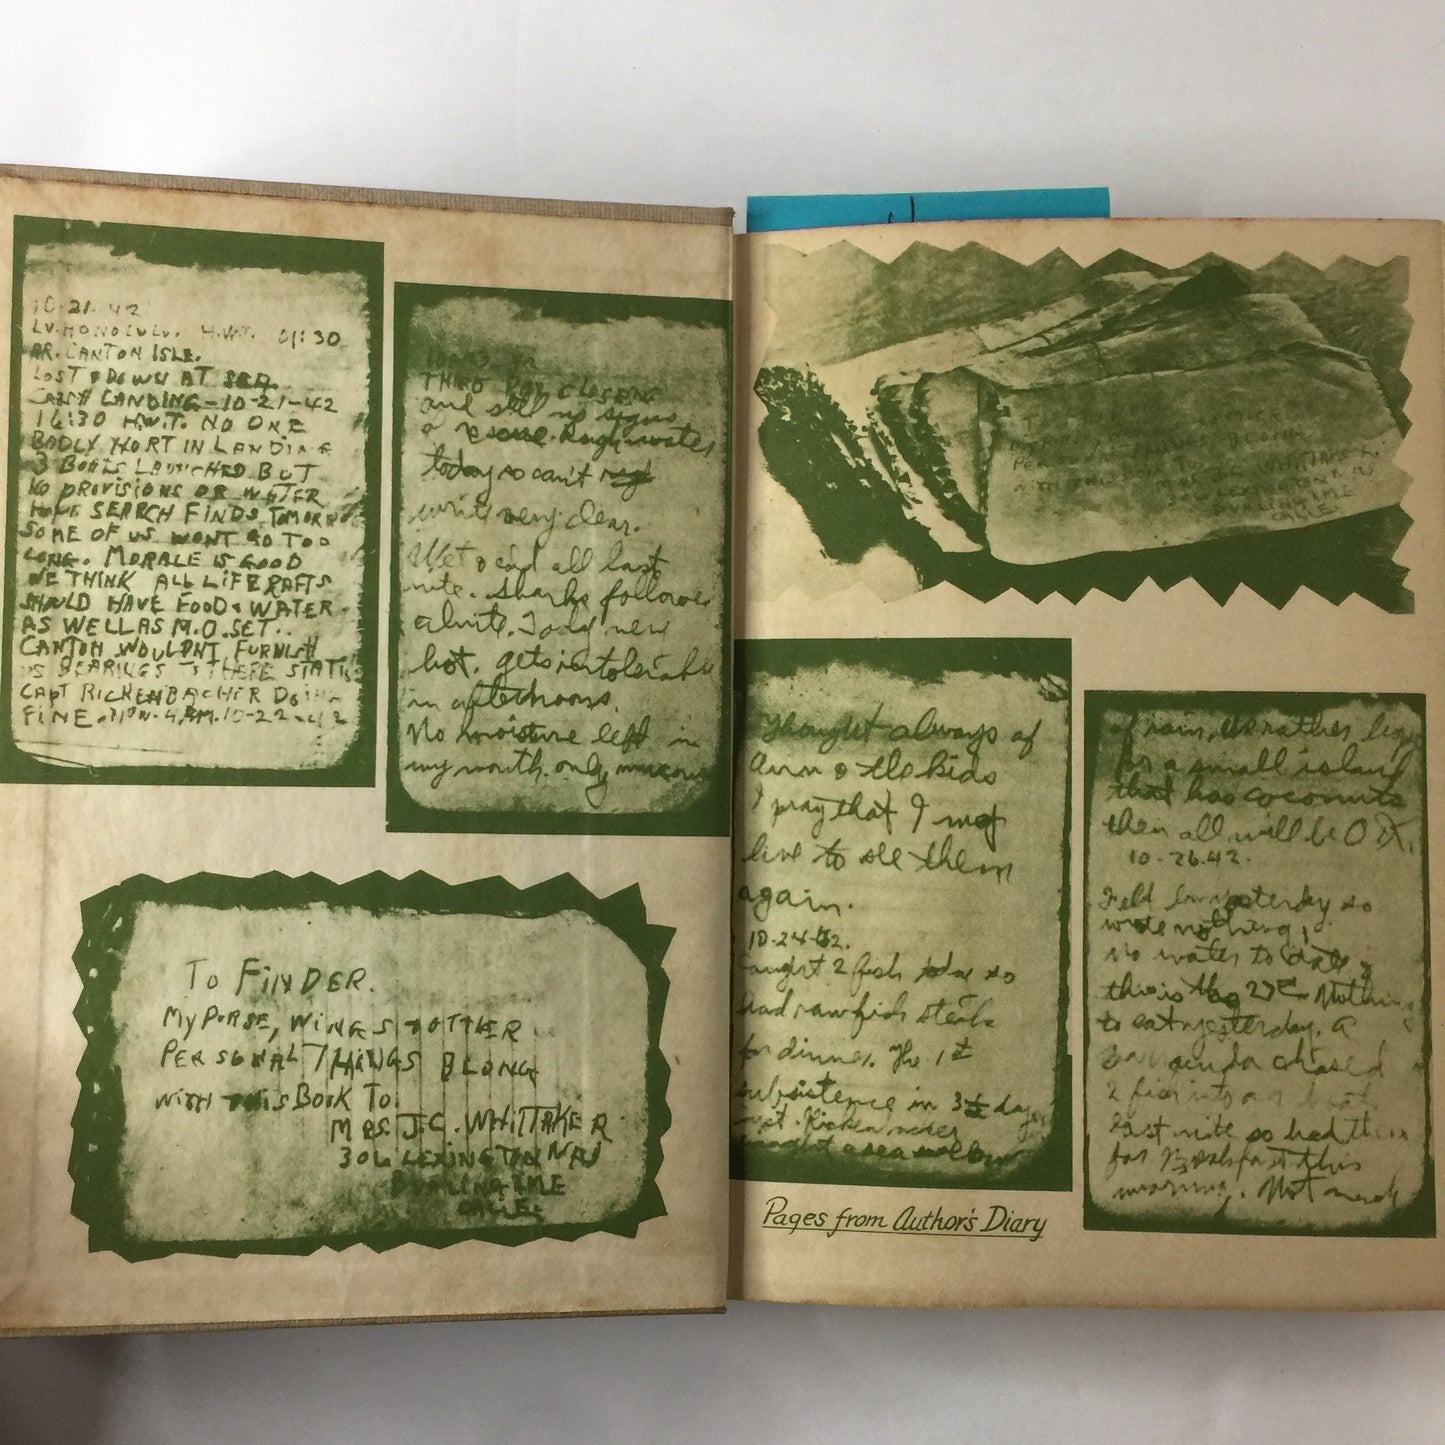 10-21-42
LV. HONOLULU. H.W.T. 01:30
AR. CANTON ISLE.
LOST & DOWN AT SEA.
CRASH LANDING-10-21-42
16:30 H.W.T. NO ONE
BADLY HURT IN LANDING
3 BOATS LAUNCHED BUT
NO PROVISIONS OR WATER
HOPE SEARCH FINDS TOMORR
SOME OF US WONT GO TOO
LONG. MORALE IS GOOD
WE THINK ALL LIFE RAFTS
SHOULD HAVE FOOD & WATER
AS WELL AS M.O. SET..
CANTON WOULDNT FURNISH
US BEARINGS THERE STATIC
CAPT RICKENBACHER DOING
FINE. 4.AM. 10-22-42
THIRD DAY
and still no signs
a rescue. Rough water
today so can't
write very clear.
Wet & cold all last
nite. sharks followed
alnite. Today new
hot. gets intolerable
in afternoons.
No moisture left in
my mouth. only mucous
TO FINDER.
MY PURSE, WINGS & OTHER
PERSONAL THINGS BLONG
WITH THIS BOOK TO.
MRS. J.C. WHITTAKER
306 LEXINGTON WAY
BURLINGAME
CALIF.
PERSONAL
WITH THIS BOOK TO. MRS J.C. WHITTAKER
LEXINGTON
BURLINGAME
CALIF.
Thought always of
Ann & the kids
I pray that I may
live to see them
again.
10-24-42.
Caught 2 fish so
had raw fish steak
for dinner. The 1st
subsistence in 3½ days
caught a sea
Pages from Author's Diary
of rain,
for a small island
that has coconuts
then all will be O.K.
10-26-42.
Felt yesterday so
wrote nothing.
No water to date
this is Nothing
to eat yesterday. A
chased
2 fish into boat
last nite so had them
for Breakfast this
morning. Not much